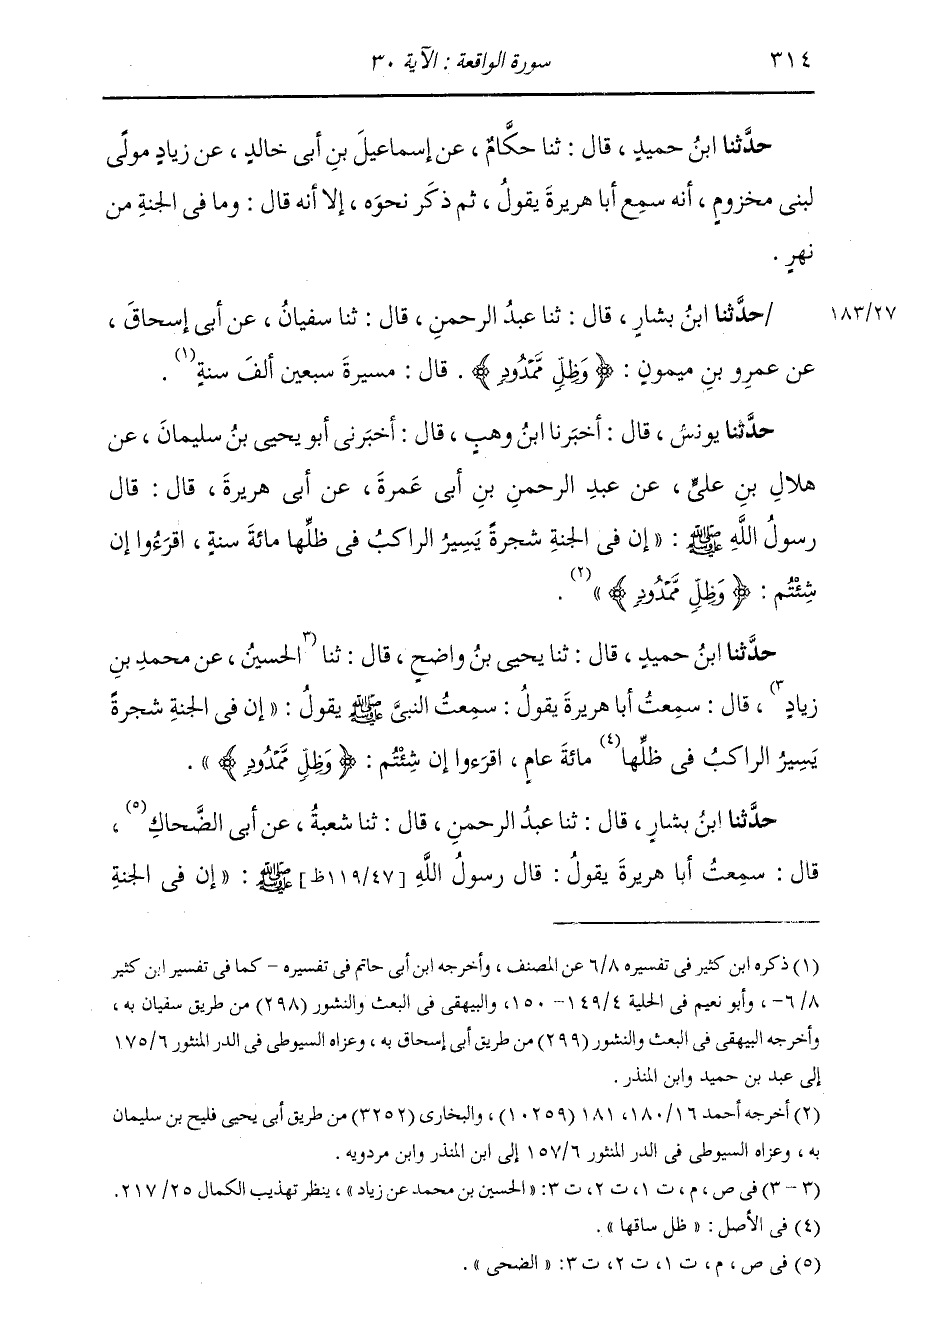 ٣١٤ سورة الواقعة : الآية ٣٠
حدَّثنا ابنُ حميدٍ ، قال : ثنا حكَّامٌ ، عن إسماعيلَ بنِ أبى خالدٍ ، عن زيادٍ مولًى
لبنى مخزومٍ ، أنه سمِع أبا هريرةَ يقولُ ، ثم ذكَر نحوَه ، إلا أنه قال : وما فى الجنةِ من
نهرٍ .
١٨٣/٢٧ /حدَّثنا ابنُ بشارٍ ، قال : ثنا عبدُ الرحمنِ ، قال : ثنا سفيانُ ، عن أبى إسحاقَ ،
عن عمرِو بنِ ميمونٍ : ﴿ وَظِلٍّ مَّمْدُودٍ ﴾ . قال : مسيرةَ سبعين ألفَ سنةٍ(١) .
حدَّثنا يونسُ ، قال : أخبَرنا ابنُ وهبٍ ، قال : أخبَرنى أبو يحيى بنُ سليمانَ ، عن
هلالِ بنِ علىٍّ ، عن عبدِ الرحمنِ بنِ أبى عَمرةَ ، عن أبى هريرةَ ، قال : قال
رسولُ اللَّهِ ﷺ : « إن فى الجنةِ شجرةً يَسِيرُ الراكبُ فى ظلِّها مائةَ سنةٍ ، اقرَءُوا إن
شِئْتُم : ﴿ وَظِلٍّ مَّمْدُودٍ ﴾ »(٢) .
حدَّثنا ابنُ حميدٍ ، قال : ثنا يحيى بنُ واضحٍ ، قال : ثنا (٣الحسينُ ، عن محمدِ بنِ
زيادٍ٣) ، قال : سمِعتُ أبا هريرةَ يقولُ : سمِعتُ النبىَّ ﷺ يقولُ : « إن فى الجنةِ شجرةً
يَسِيرُ الراكبُ فى ظلِّها(٤) مائةَ عامٍ ، اقرَءوا إن شِئْتُم : ﴿ وَظِلٍّ مَّمْدُودٍ ﴾ » .
حدَّثنا ابنُ بشارٍ ، قال : ثنا عبدُ الرحمنِ ، قال : ثنا شعبةُ ، عن أبى الضَّحاكِ(٥) ،
قال : سمِعتُ أبا هريرةَ يقولُ : قال رسولُ اللَّهِ [١١٩/٤٧ظ] ﷺ : « إن فى الجنةِ
(١) ذكره ابن كثير فى تفسيره ٦/٨ عن المصنف ، وأخرجه ابن أبى حاتم فى تفسيره - كما فى تفسير ابن كثير
٦/٨ -، وأبو نعيم فى الحلية ١٤٩/٤ - ١٥٠، والبيهقى فى البعث والنشور (٢٩٨) من طريق سفيان به ،
وأخرجه البيهقى فى البعث والنشور (٢٩٩) من طريق أبى إسحاق به ، وعزاه السيوطى فى الدر المنثور ١٧٥/٦
إلى عبد بن حميد وابن المنذر .
(٢) أخرجه أحمد ١٨٠/١٦، ١٨١ (١٠٢٥٩) ، والبخارى (٣٢٥٢) من طريق أبى يحيى فليح بن سليمان
به ، وعزاه السيوطى فى الدر المنثور ١٥٧/٦ إلى ابن المنذر وابن مردويه .
(٣ - ٣) فى ص ، م ، ت ١، ت ٢، ت ٣: « الحسين بن محمد عن زياد » ، ينظر تهذيب الكمال ٢١٧/٢٥.
(٤) فى الأصل : « ظل ساقها » .
(٥) فى ص ، م ، ت ١، ت ٢، ت ٣: « الضحى » .